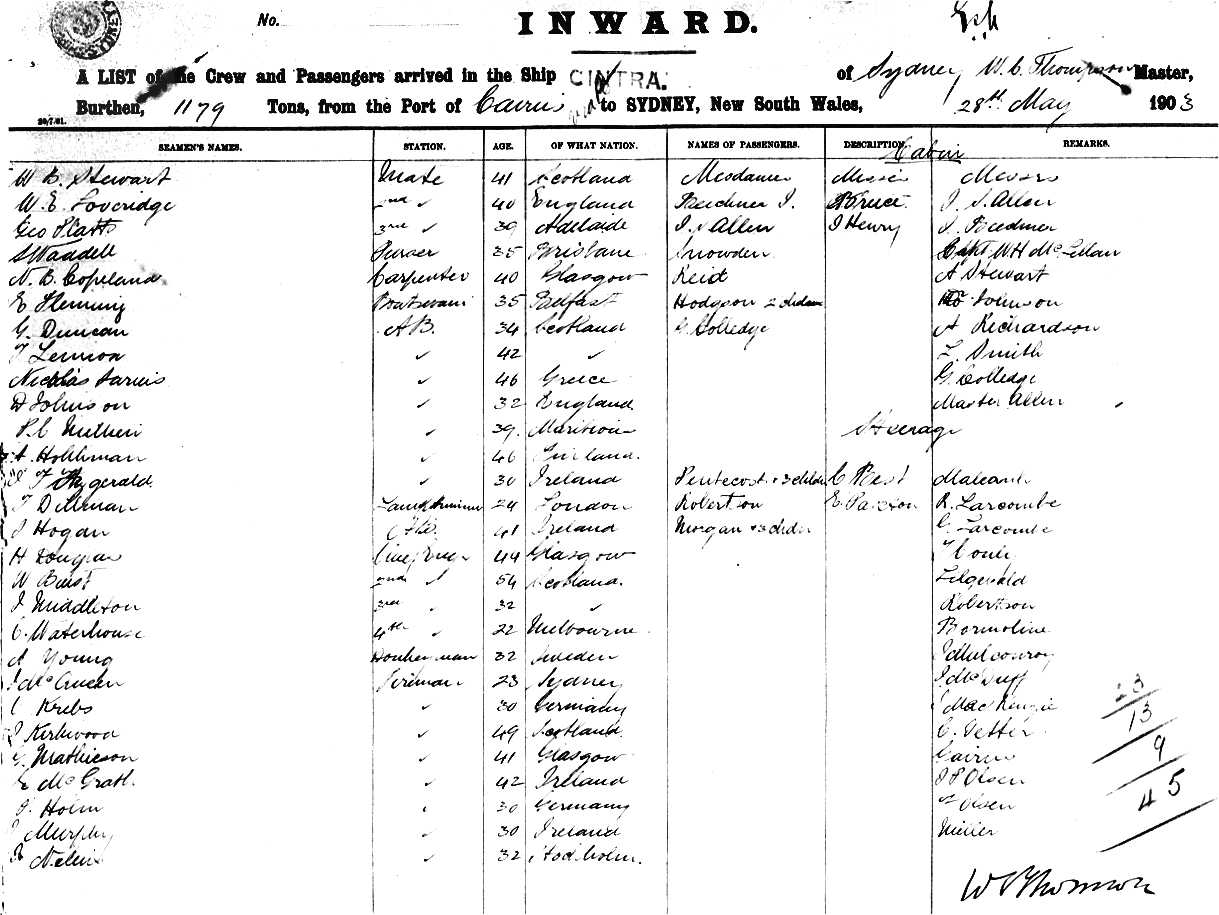 No.
INWARD.
A LIST of the Crew and Passengers arrived in the Ship CINTRA. of Sydney W. C. Thompson Master,
Burthen, 1179 Tons, from the Port of Cairns to SYDNEY, New South Wales, 28th May 1903
SEAMEN'S NAMES. STATION. AGE. OF WHAT NATION. NAMES OF PASSENGERS. DESCRIPTION. REMARKS.
Cabin
W B. Stewart Mate 41 Scotland Mesdames Misses Messrs
W. E. Loveredge 2nd " 40 England J. Bruce J. S. Allen
Geo Platts 3rd " 39 Adelaide J. S Allen J Henry J.
S Waddell Purser 35 Brisbane Snowden Capt WH McLellan
N. B. Copeland Carpenter 40 Glasgow Reid A Stewart
E Fleming Boatswain 35 Belfast Hodgson Johnson
G. Duncan A.B. 34 Scotland G Colledge A Richardson
T Lennox " 42 " L. Smith
Nicholas " 46 Greece G. Colledge
D Johnson " 32 England Master Allen
" 39. Steerage
" 46
T Fitzgerald " 30 Ireland Pentecost + 3 C Best
T Dillman 24 London Robertson E. Paxton R. Larcombe
J Hogan 41 Ireland Morgan G. Larcombe
H Douglas 44 Glasgow
W Buist 2nd " 54 Scotland.
J Middleton 3rd " 32 " Robertson
C. Waterhouse 4th " 22 Melbourne
A Young Donkeyman 32 Sweden
J McQueen Fireman 23 Sydney J. McDuff
C Krebs " 30 Germany MacKenzie 23
J Kirkwood " 49 Scotland C. Vetter 13
G. Mathieson " 41 Glasgow 9
E McGrath " 42 Ireland J P Olsen 45
Holm " 30 Germany Olsen
Murphy " 30 Ireland Miller
" 32 Stockholm.
W C Thomson